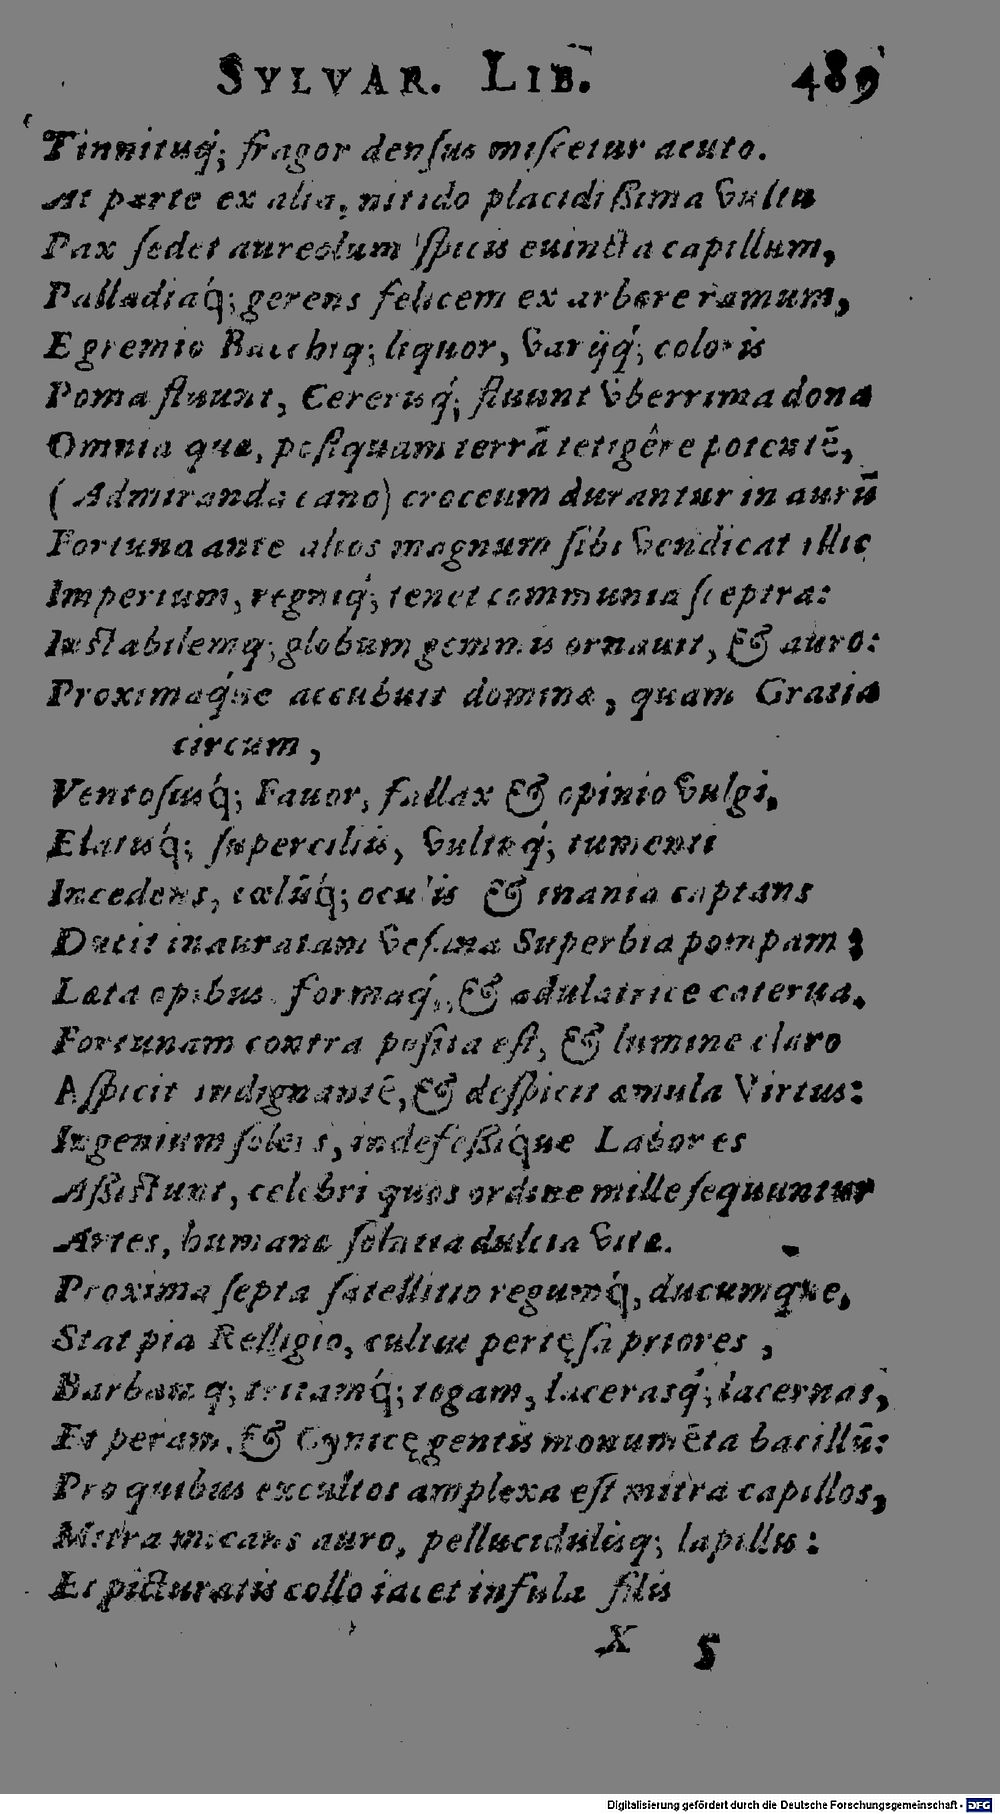 SYLVAR. LIB. 489
Tinnituq́; fragor denſus miſcetur acuto.
At parte ex alia, nitido placidißima vultu
Pax ſedet aureolum ſpicis euincta capillum,
Palladiaq́; gerens felicem ex arbore ramum,
E gremio Bacchiq; liquor, varijq́; coloris
Poma fluunt, Cererisq́; fluunt vberrima dona
Omnia quæ, poſtquam terrā tetigêre potentē,
(Admiranda cano) croceum durantur in aurū
Fortuna ante alios magnum ſibi vendicat illic
Imperium, regniq́; tenet communia ſceptra:
Inſtabilemq; globum gemmis ornauit, & auro:
Proximaq́ue accubuit dominæ, quam Gratia
circum,
Ventoſusq́; Fauor, fallax & opinio vulgi,
Elatisq́; ſupercilijs, vultuq́; tumenti
Incedens, cœlūq́; oculis & inania captans
Ducit inauratam veſana Superbia pompam:
Læta opibus formaq́,, & adulatrice caterua.
Fortunam contra poſita eſt, & lumine claro
Aſpicit indignantē, & deſpicit æmula Virtus:
Ingenium ſolers, indefeßiq́ue Labores
Aßiſtunt, celebri quos ordine mille ſequuntur
Artes, humanæ ſolatia dulcia vitæ.
Proxima ſepta ſatellitio regumq́, ducumq́ue,
Stat pia Relligio, cultus pertęſa priores,
Barbamq; tritamq́; togam, lacerasq́; lacernas,
Et peram, & Cynicę gentis monumēta bacillū:
Pro quibus excultos amplexa eſt mitra capillos,
Mitra micans auro, pellucidulisq; lapillis:
Et picturatis collo iacet infula filis
X 5
Digitalisierung gefördert durch die Deutsche Forschungsgemeinschaft - DFG